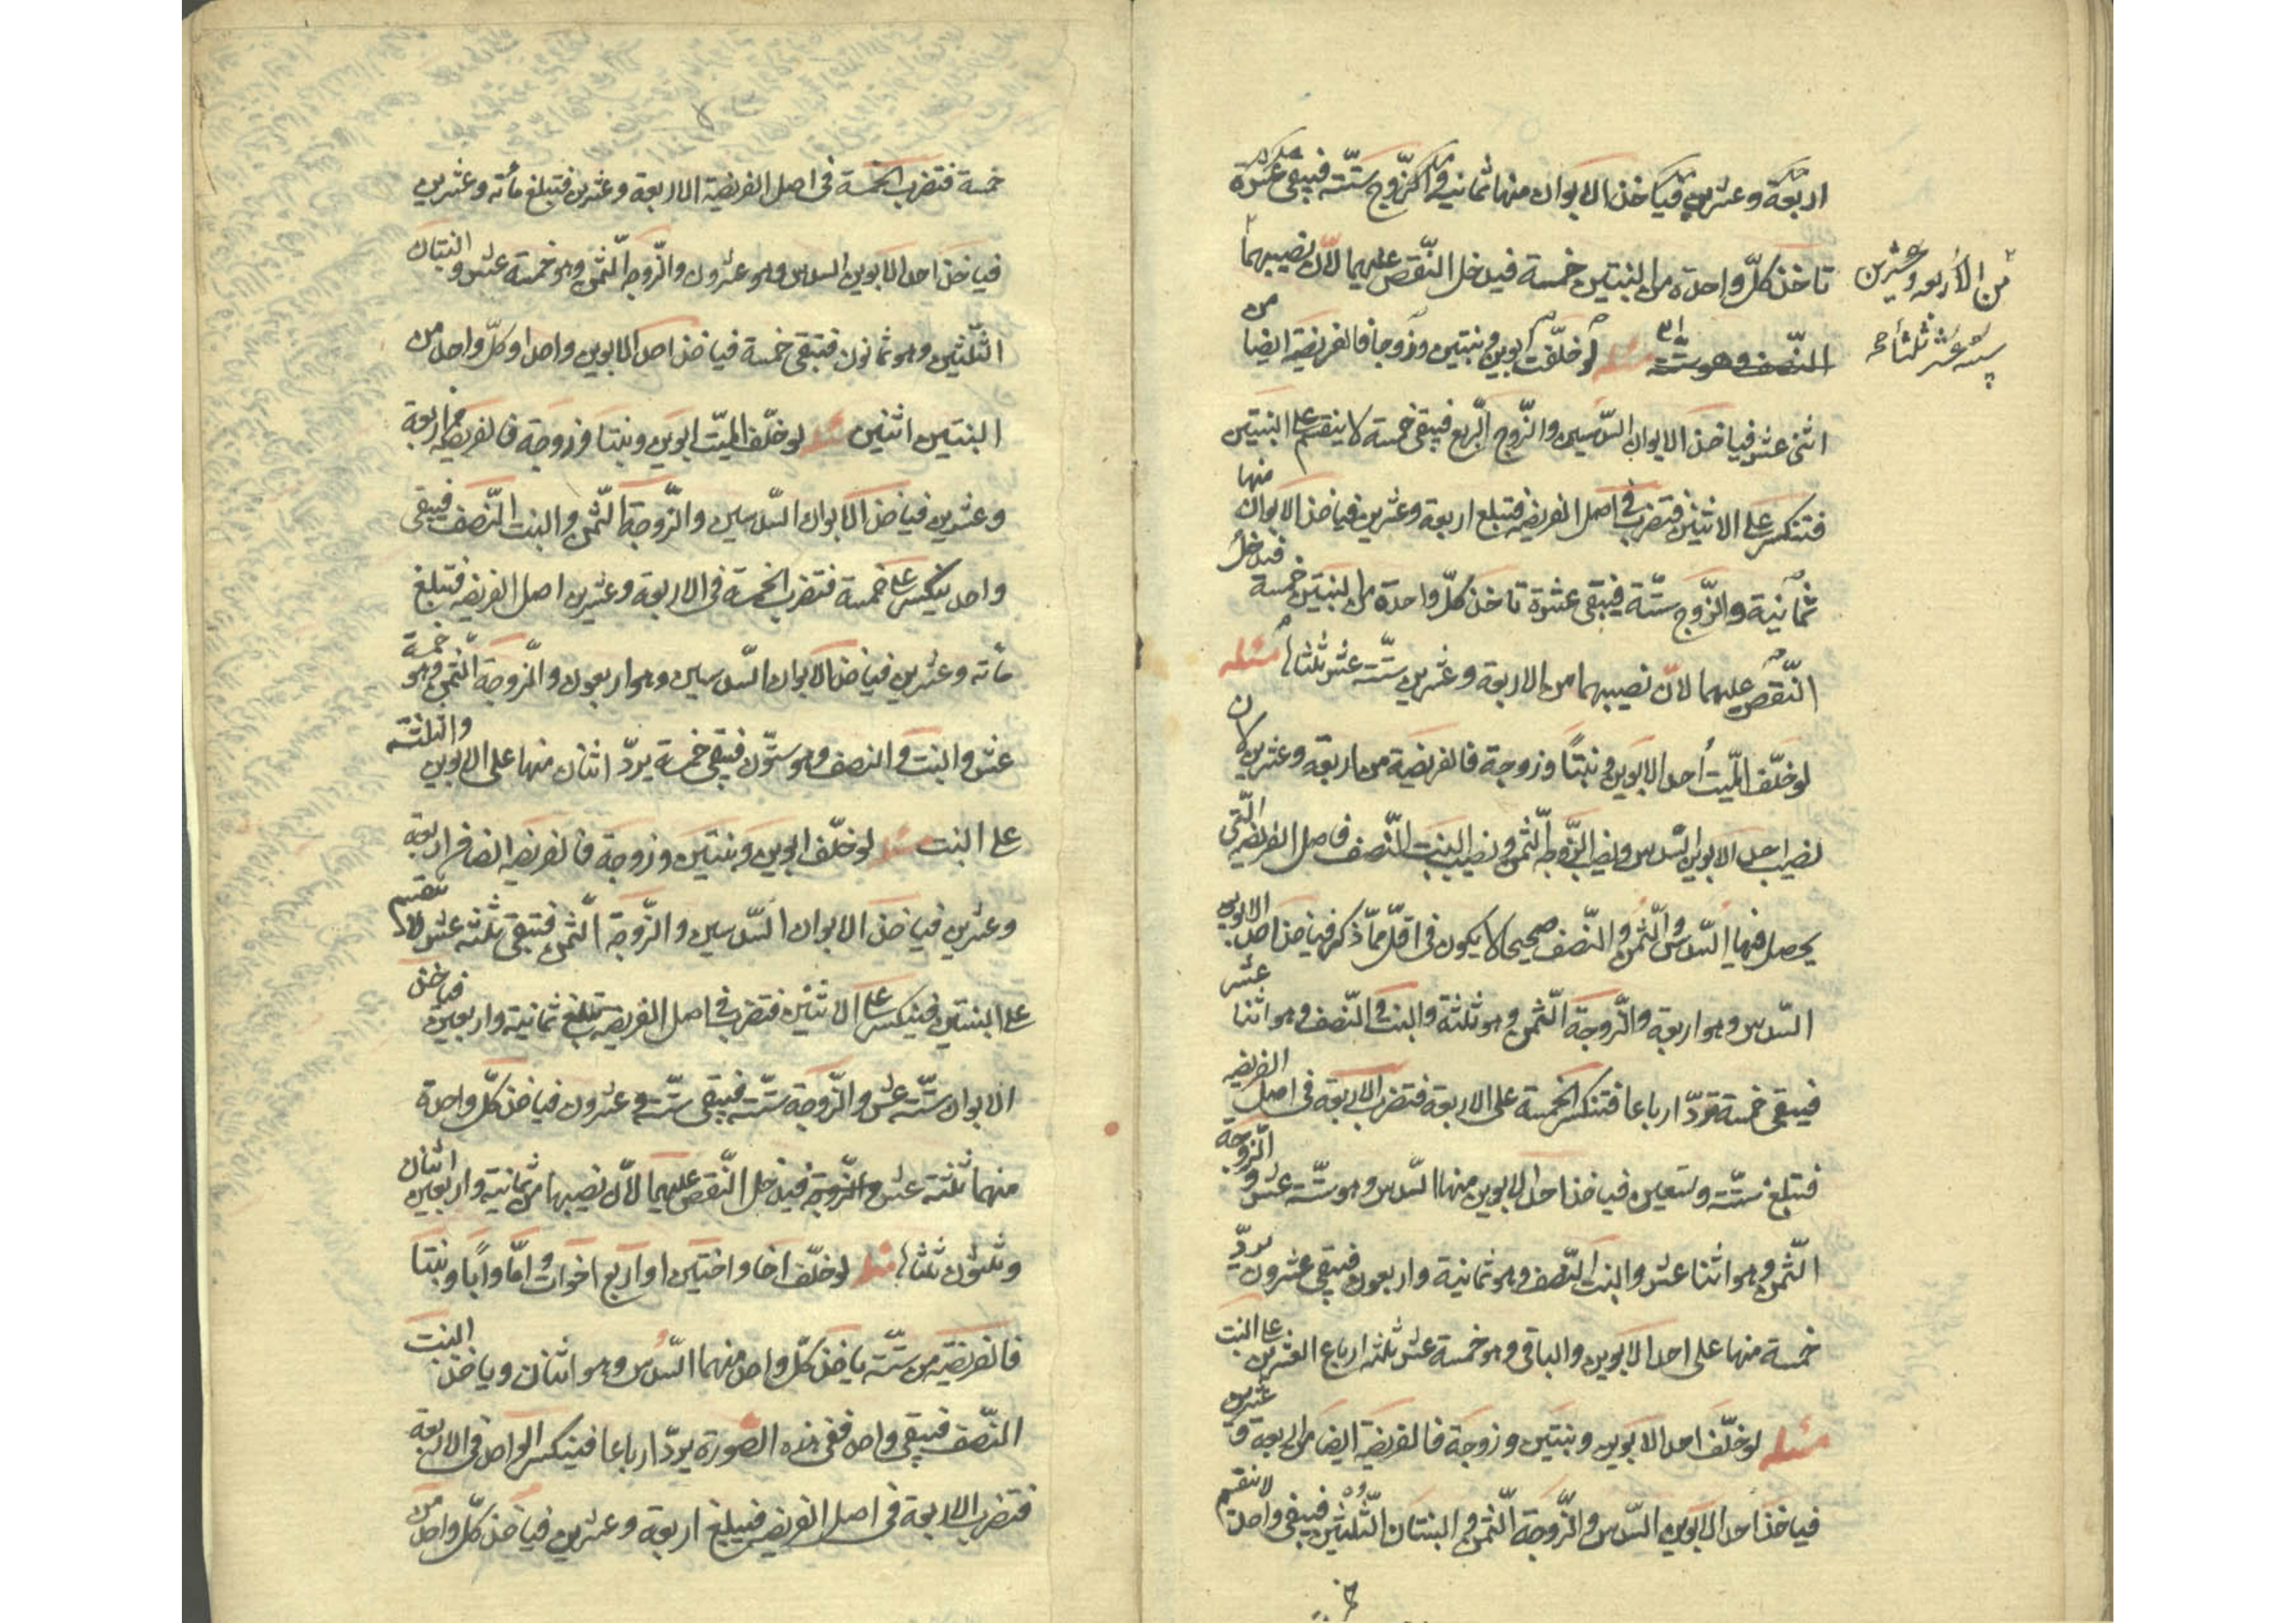 اربعة وعشرين فياخذ الابوان منها ثمانية والزّوج ستّة فيبقى عشرة
تاخذ كلّ واحدة من البنتين خمسة فيدخل النّقص عليهما لانّ نصيبهما
من الاربعة وعشرين
ستة عشر ثلثاها صح
من
النّصف وهو ستّة مسئله لو خلّفت ابوين وبنتين وزوجا فالفريضة ايضا
اثنى عشر فياخذ الابوان السّدسين والزّوج الرّبع فيبقى خمسة لا ينقسم على البنتين
فتنكسر على الاثنين فتضرب في اصل الفريضه فتبلغ اربعة وعشرين فياخذ الابوان منها
ثمانية والزّوج ستّة فيبقى عشرة تاخذ كلّ واحدة من البنتين خمسة فيدخل
النّقص عليهما لانّ نصيبهما من الاربعة وعشرين ستّة عشر ثلثاها مسئله
لو خلّف الميّت احد الابوين وبنتًا وزوجة فالفريضة من اربعة وعشرين لان
نصيب احد الابوين السّدس ونصيب الزّوجة الثّمن ونصيب البنت النّصف فاصل الفريضه الّتى
يحصل منها السّدس والثّمن والنّصف صحيحا لا يكون في اقلّ ممّا ذكر فياخذ احد الابوين
السّدس وهو اربعة والزّوجة الثّمن وهو ثلثة والبنت النّصف وهو اثنا عشر
فيبقى خمسة تردّ ارباعا فتنكسر الخمسة على الاربعة فتضرب الاربعة في اصل الفريضه
فتبلغ ستّة وتسعين فياخذ احد الابوين منها السّدس وهو ستّة عشر والزّوجة
الثّمن وهو اثنا عشر والبنت النّصف وهو ثمانية واربعون فيبقى عشرون يردّ
خمسة منها على احد الابوين والباقى وهو خمسة عشر ثلثه ارباع العشرين على البنت
مسئله لو خلّف احد الابوين وبنتين وزوجة فالفريضة ايضا من اربعة وعشرين
فياخذ احد الابوين السّدس والزّوجة الثّمن والبنتان الثّلثين فيبقى واحد لا ينقسم
خمسة فتضرب الخمسة في اصل الفريضة الاربعة وعشرين فتبلغ مأته وعشرين
فياخذ احد الابوين السدس وهو عشرون والزّوجة الثّمن وهو خمسة عشر والبنتان
الثّلثين وهو ثمانون فتبقى خمسة فياخذ احد الابوين واحدا وكلّ واحد من
البنتين اثنين مسئله لو خلّف الميّت ابوين وبنتا وزوجة فالفريضه من اربعة
وعشرين فياخذ الابوان السّدسين والزّوجة الثّمن والبنت النّصف فيبقى
واحد ينكسر على خمسة فتضرب الخمسة في الاربعة وعشرين اصل الفريضه فتبلغ
مأته وعشرين فياخذ الابوان السّدسين وهو اربعون والزّوجة الثّمن وهو خمسة
عشر والبنت النصف وهو ستّون فيبقى خمسة يردّ اثنان منها على الابوين والثلثة
على البنت مسئله لو خلّف ابوين وبنتين وزوجة فالفريضه ايضا من اربعة
وعشرين فياخذ الابوان السّدسين والزّوجة الثّمن فتبقى ثلثة عشر لا ينقسم
على البنتين فينكسر على الاثنين فتضرب في اصل الفريضه تبلغ ثمانية واربعين فياخذ
الابوان ستّة عشر والزّوجة ستّة فيبقى ستّة وعشرون فياخذ كلّ واحدة
منهما ثلثة عشر والزّوجة فيدخل النّقص عليهما لانّ نصيبهما من ثمانية واربعين اثنان
وثلثون ثلثاها مسئله لو خلّف اخا واختين او اربع اخوات وامّا وابًا وبنتا
فالفريضة من ستّة ياخذ كلّ واحد منهما السّدس وهو اثنان وياخذ البنت
النّصف فيبقى واحد ففى هذه الصّورة يردّ ارباعا فينكسر الواحد في الاربعة
فتضرب الاربعة في اصل الفريضه فيبلغ اربعة وعشرين فياخذ كلّ واحد من